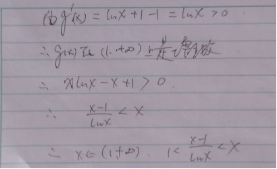 (2) g'(x) = lnx + 1 - 1 = lnx > 0.
∴ g(x) 在 (1, +∞) 上是增函数
∴ xlnx - x + 1 > 0.
∴ \frac{x-1}{lnx} < x
∴ x ∈ (1, +∞). 1 < \frac{x-1}{lnx} < x